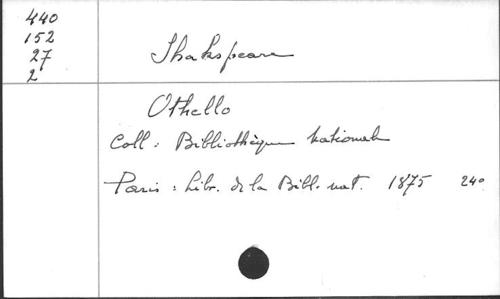 440
152
27
2
Shakspeare
Othello
Coll : Bibliothèque nationale
Paris : Libr. de la Bibl. nat. 1875 24°